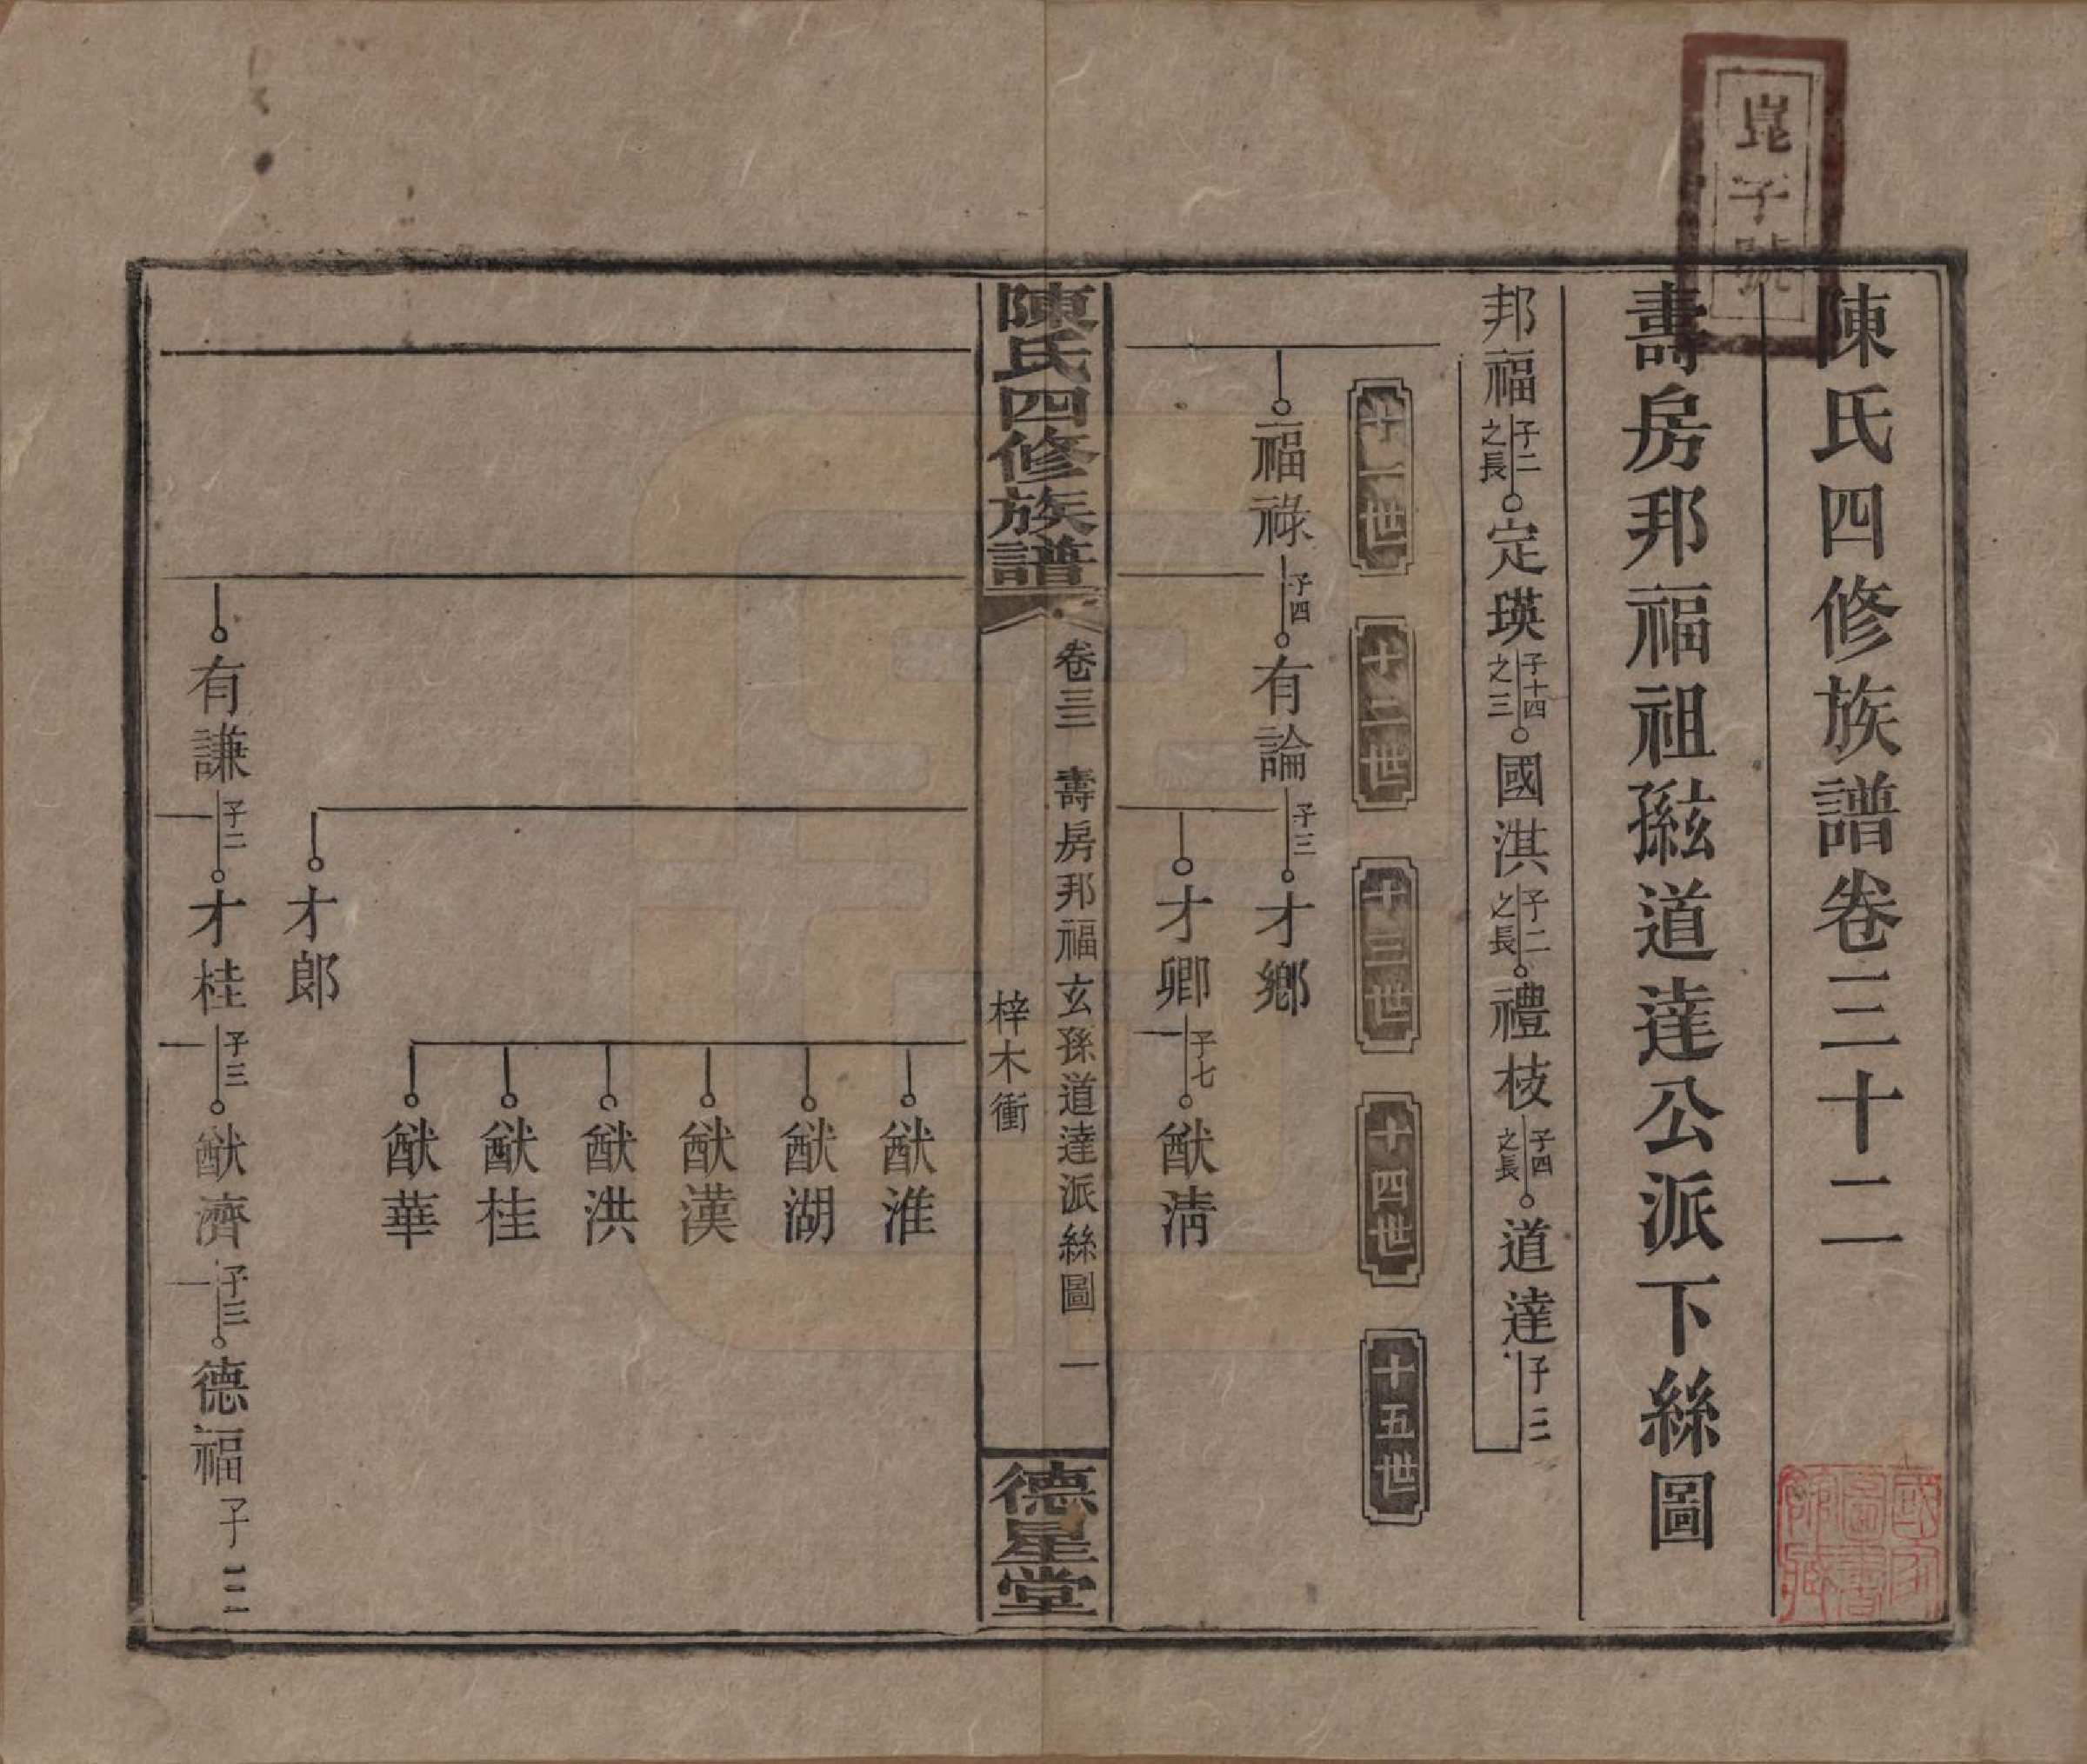 崑字號
陳氏四修族譜卷三十二
壽房邦福祖孫玄道達公派下絲圖
邦福 子二 之長 定瑛 子十四 之三 國淇 子二 之長 禮枝 子四 之長 道達 子二
十一世 十二世 十三世 十四世 十五世
福祿 子四 有論 子三 才鄉
才卿 子七 猷清
陳氏四修族譜 卷三二 壽房邦福玄孫道達派絲圖 一
梓木衝 德星堂
猷淮
猷湖
猷漢
猷洪
猷桂
猷華
才郎
有謙 子二 才桂 子三 猷濟 子三 德福 子三
國家圖書館藏